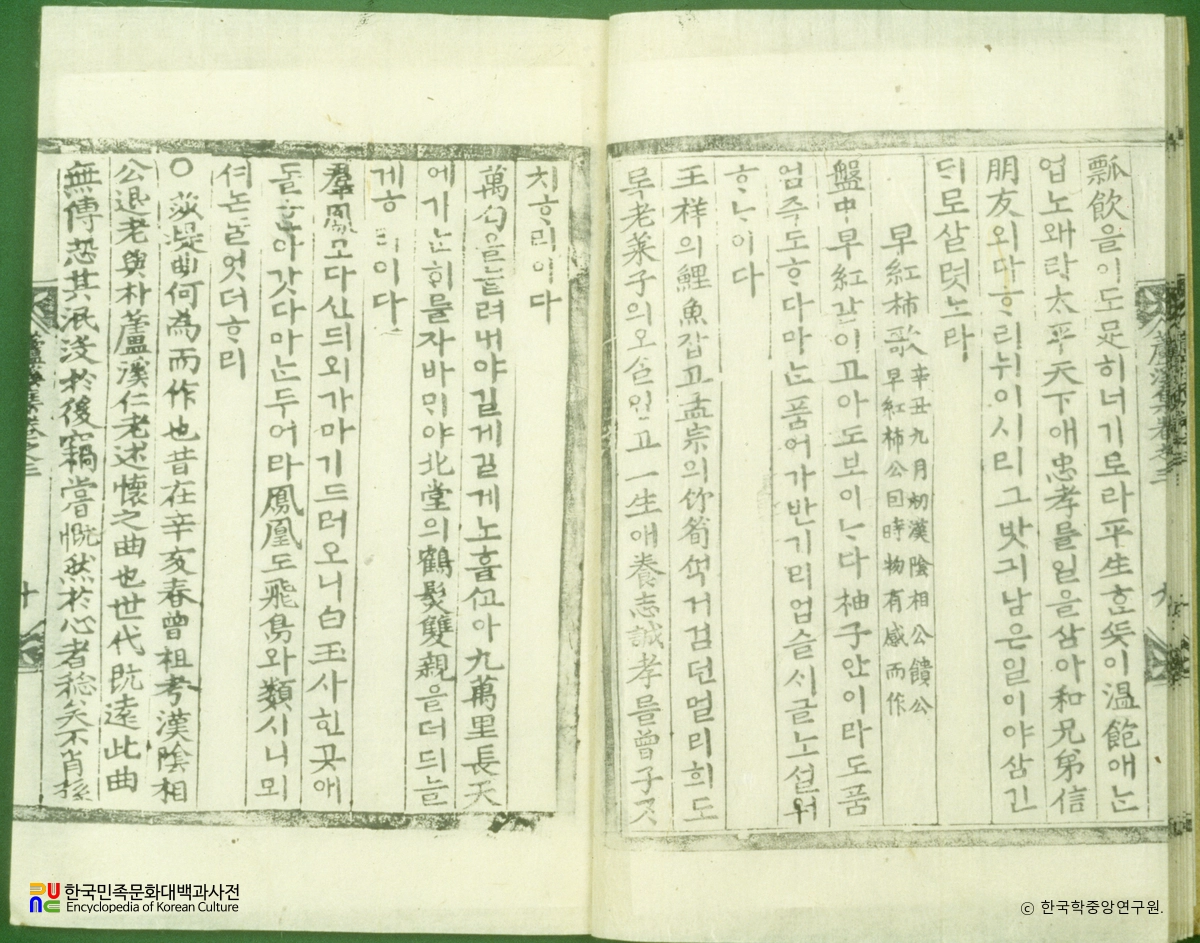 瓢飮을이도足히너기로라平生ᄒᆞᆫᄠᅳᆺ이溫飽애ᄂᆞᆫ
업노왜라太平天下애忠孝를일을삼아和兄弟信
朋友외다ᄒᆞ리뉘이시리그밧긔남은일이야삼긴
ᄃᆡ로살렷노라
早紅柿歌
辛丑九月初漢陰相公饋公
早紅柿公因時物有感而作
盤中早紅감이고아도보이ᄂᆞ다柚子안이라도품
엄즉도ᄒᆞ다마ᄂᆞᆫ품어가반기리업슬ᄉᆡ글노설워
ᄒᆞᄂᆞ이다
王祥의鯉魚잡고孟宗의竹筍것거검던멀리희도
록老萊子의오슬입고一生애養志誠孝를曾子ᄀᆞᆺ
蘆溪集卷之三
九
치ᄒᆞ리이다
萬勻을늘려내야길게길게노흘ᄭᅩ아九萬里長天
에가ᄂᆞᆫᄒᆡ를자바ᄆᆡ야北堂의鶴髮雙親을더듸늘
게ᄒᆞ리이다
羣鳳모다신듸외가마기드러오니白玉사힌곳애
돌ᄒᆞ나갓다마ᄂᆞᆫ두어라鳳凰도飛鳥와類시니뫼
셔논들엇더ᄒᆞ리
○莎堤曲何爲而作也昔在辛亥春曾祖考漢陰相
公退老與朴蘆溪仁老述懷之曲也世代旣遠此曲
無傳恐其泯沒於後竊嘗慨然於心者稔矣不肖孫
蘆溪集卷之三
十
한국민족문화대백과사전
Encyclopedia of Korean Culture
ⓒ 한국학중앙연구원.